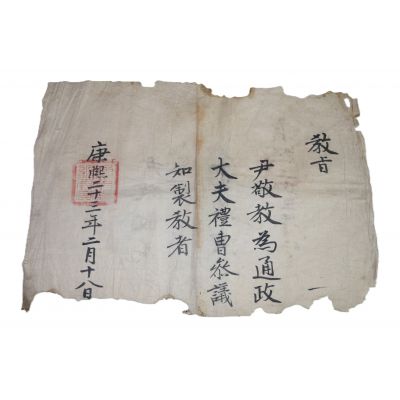 教旨
尹敬教為通政
大夫禮曹叅議
知製教者
康熙二十二年二月十八日